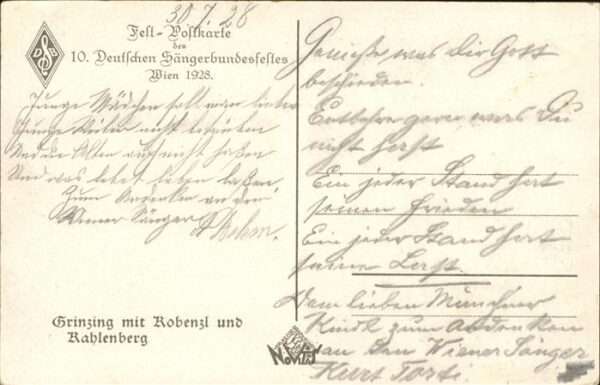 30/7.28
Fest-Postkarte
des
10. Deutschen Sängerbundesfestes
Wien 1928.
DSB
Junge Mädchen soll man lieben
Junge Witwen nicht betrüben
Und die Alten auch nicht haßen
Und was lebet leben laßen
Zum Andenken an den
Wiener Sänger
Böhm.
Grinzing mit Kobenzl und
Kahlenberg
Genieße was Dir Gott
beschieden.
Entbehre gern was Du
nicht hast
Ein jeder Stand hat
seinen Frieden
Ein jeder Stand hat
seine Last.
Dem lieben Münchner
Kindl zum Andenken
an den Wiener Sänger
Kurt